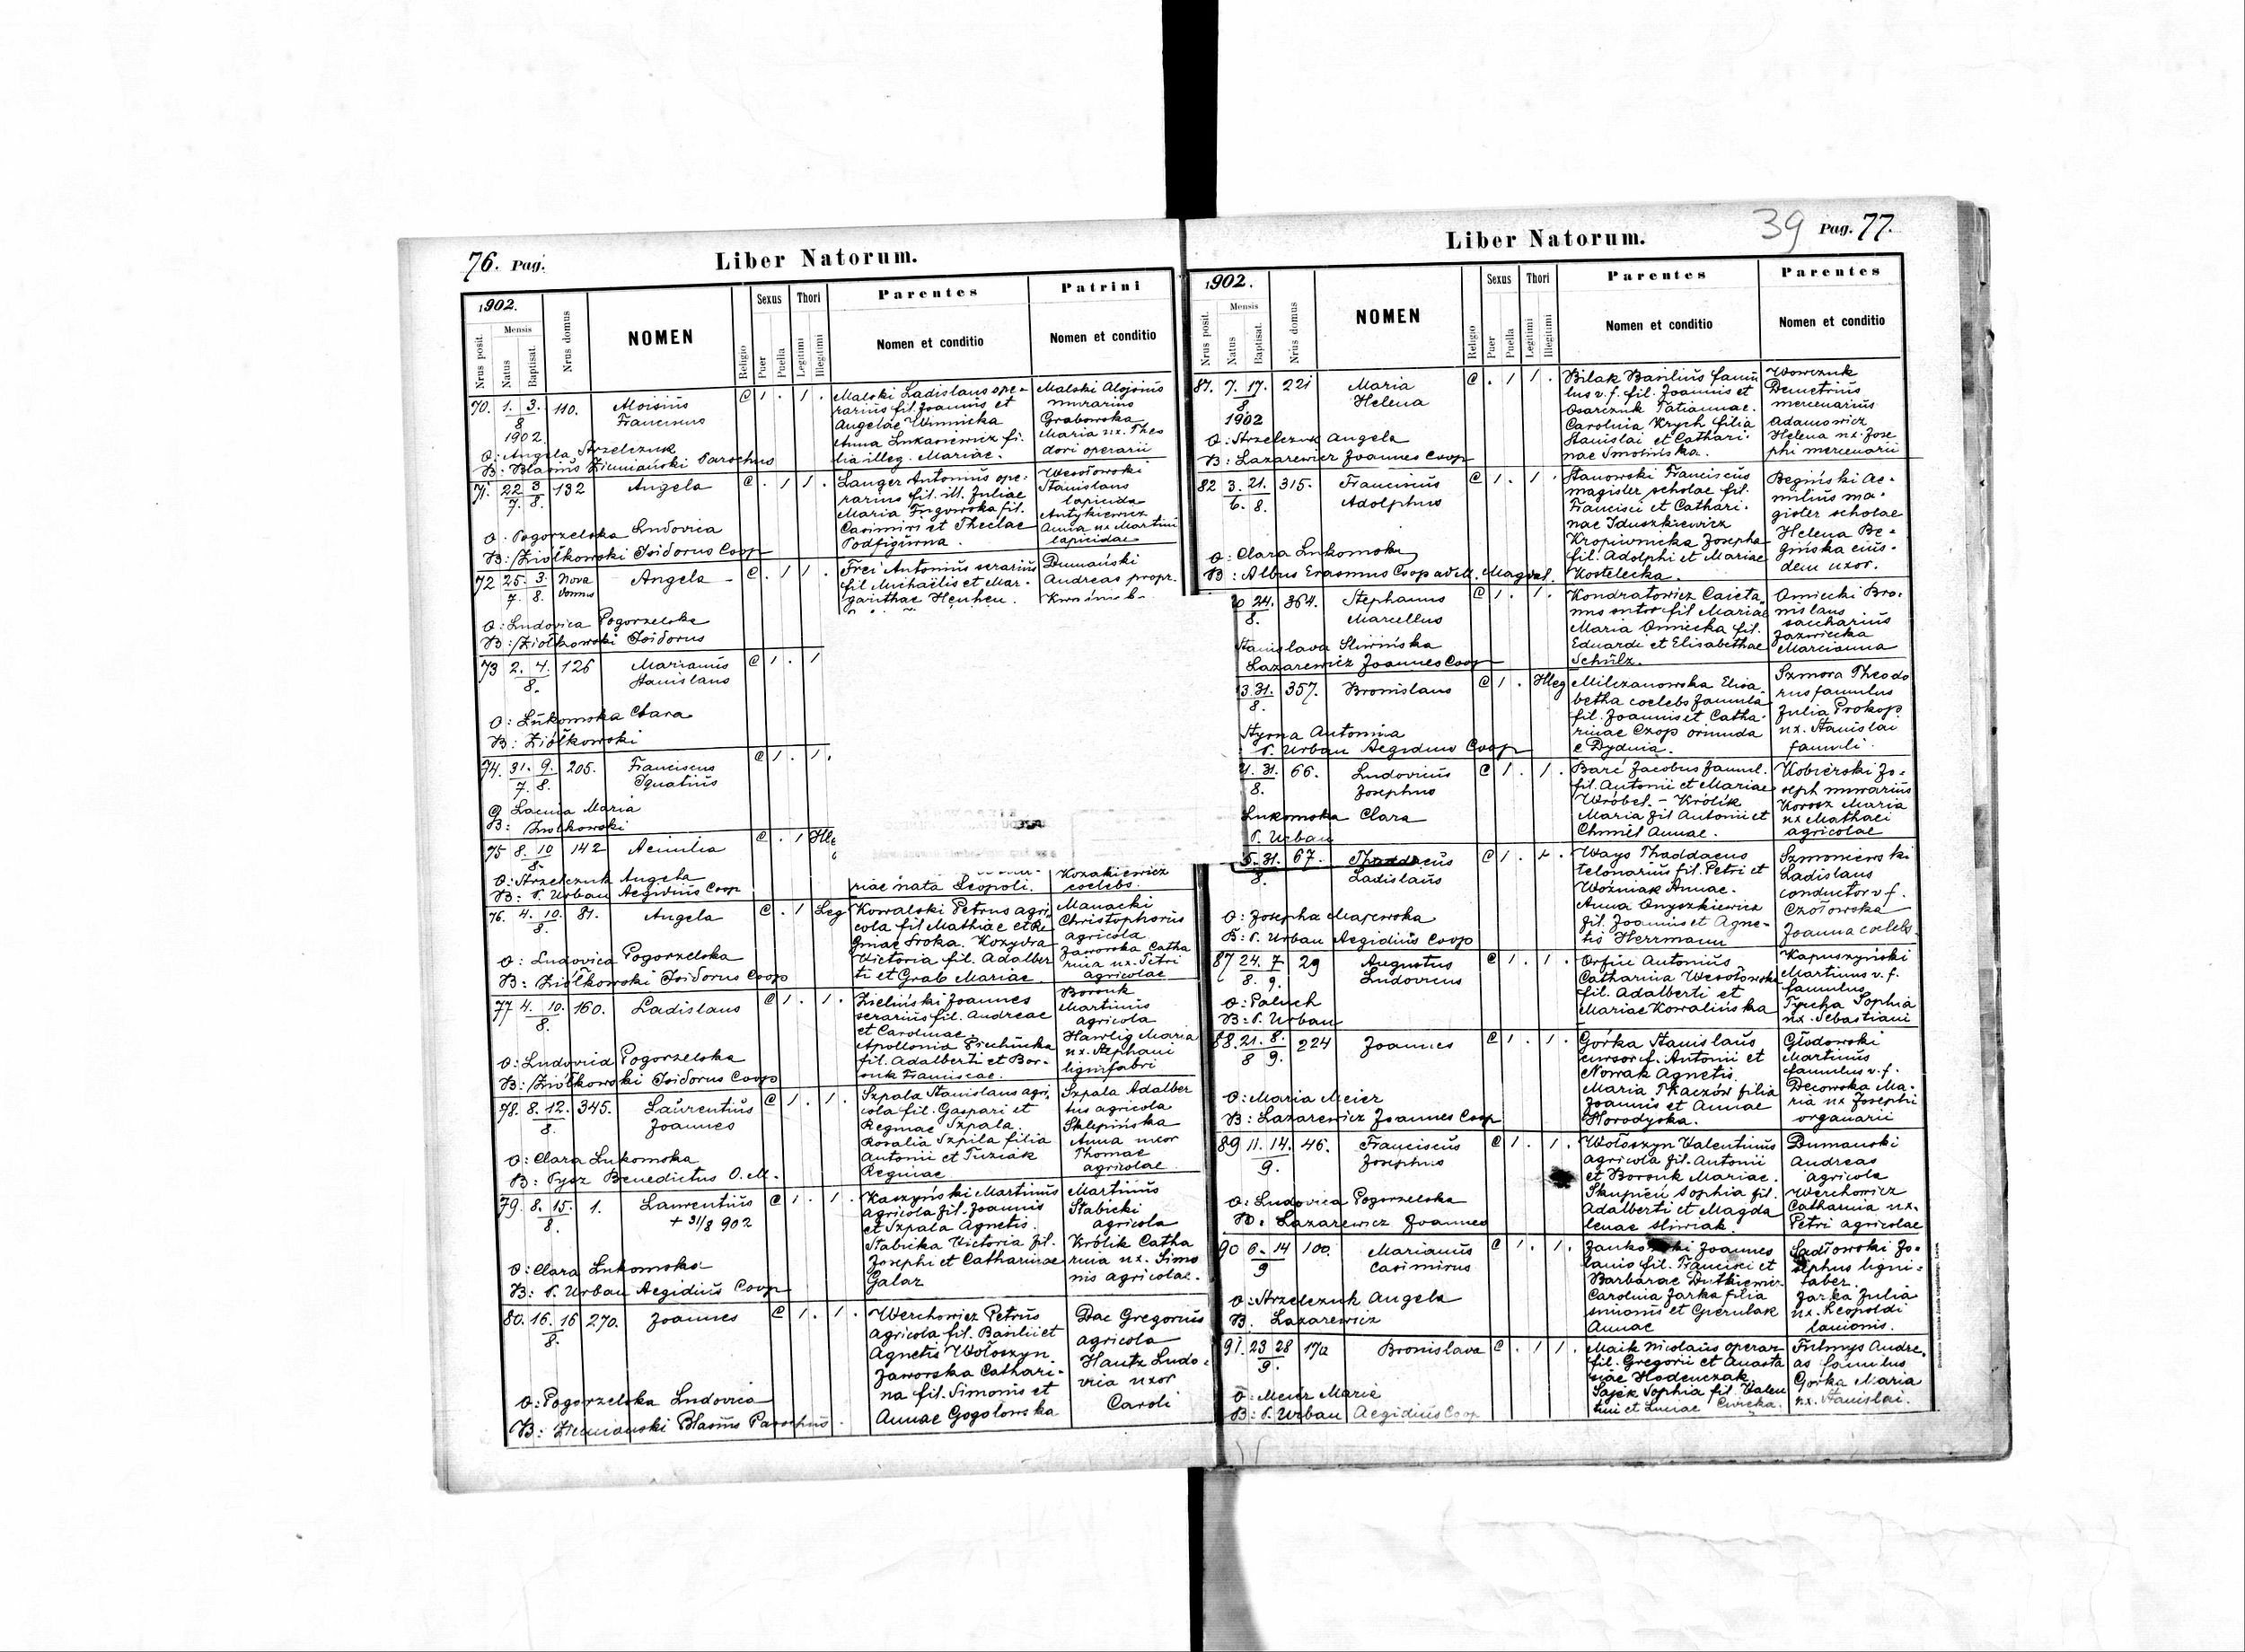 76. Pag.
Liber Natorum.
1902.
Nrus posit.
Mensis
Natus
Baptisat.
Nrus domus
NOMEN
Religio
Sexus
Puer
Puella
Thori
Legitimi
Illegitimi
Parentes
Nomen et conditio
Patrini
Nomen et conditio
70. 1. 3. 110. Aloisius
8 Franciscus
1902.
O: Angela Strzelczuk
B: Blasius Ziemiański Parochus
Malski Ladislaus ope-
rarius fil. Joannis et
Angelae Winnicka
Anna Lukasiewicz fi-
lia illeg. Mariae.
Malski Alojsius
murarius
Grabowska
Maria ux. Theo
dori operarii
71. 22 3 132 Angela
7. 8.
O. Pogorzelska Ludovica
B: Ziółkowski Isidorus Coop
Langer Antonius ope-
rarius fil. ill. Juliae
Maria fil.
Casimiri et Theclae
Podfigurna.
Wesołowski
Stanislaus
lapicida
Antykiewicz
Anna ux Martini
lapicidae
72 25. 3. Nova Angela
7. 8. domus
O: Ludovica Pogorzelska
B: Ziółkowski Isidorus
Frei Antonius serarius
fil Michaëlis et Mar-
garithae
Dumański
Andreas propr.
73 2. 4. 126 Marianus
8. Stanislaus
O: Łukomska Clara
B: Ziółkowski
74. 31. 9. 205. Franciscus
7. 8. Ignatius
Maria
B: Ziółkowski
75 8. 10 142 Aemilia
8.
O: Strzelczuk Angela
B: P. Urban Aegidius Coop
riae nata Leopoli.
Kozakiewicz
coelebs.
76. 4. 10. 81. Angela Leg
8.
O: Ludovica Pogorzelska
B: Ziółkowski Isidorus Coop
Kowalski Petrus agri-
cola fil Mathiae et Re
ginae Sroka. Kozydra
Victoria fil. Adalber
ti et Grab Mariae.
Manacki
Christophorus
agricola
Jaworska Catha
rina ux. Petri
agricolae
77 4. 10. 160. Ladislaus
8.
O: Ludovica Pogorzelska
B: Ziółkowski Isidorus Coop
Zieliński Joannes
serarius fil. Andreae
et Carolinae.
Apollonia
fil. Adalberti et Bor-
suk Franciscae.
Borsuk
Martinus
agricola
Hawlig Maria
ux. Stephani
lignifabri
78. 8. 12. 345. Laurentius
8. Joannes
O: Clara Lukomska
B: Pysz Benedictus O. M.
Szpala Stanislaus agri-
cola fil. Gaspari et
Reginae Szpala.
Rosalia Szpila filia
Antonii et Tuziak
Reginae
Szpala Adalber
tus agricola
Sklepińska
Anna uxor
Thomae
agricolae
79. 8. 15. 1. Laurentius
8. + 31/8 902
O: Clara Lukomska
B: P. Urban Aegidius Coop
Kaszyński Martinus
agricola fil. Joannis
et Szpala Agnetis.
Stabicka Victoria fil.
Josephi et Catharinae
Galaz
Martinus
Stabicki
agricola
Królik Catha
rina ux. Simo
nis agricolae.
80. 16. 16 270. Joannes
8.
O: Pogorzelska Ludovica
B: Ziemiański Blasius Parochus.
Werchowicz Petrus
agricola fil. Basilii et
Agnetis Wołoszyn
Jaworska Cathari-
na fil. Simonis et
Annae Gogolowska
Dac Gregorius
agricola
Hautz Ludo-
vica uxor
Caroli
39 Pag. 77.
Liber Natorum.
1902.
Nrus posit.
Mensis
Natus
Baptisat.
Nrus domus
NOMEN
Religio
Sexus
Puer
Puella
Thori
Legitimi
Illegitimi
Parentes
Nomen et conditio
Parentes
Nomen et conditio
81. 7. 17. 221 Maria
8. Helena
1902
O: Strzelczuk Angela
B: Lazarewicz Joannes Coop
Bilak Basilius famu
lus v. f. fil. Joannis et
Osarczuk Tatiannae.
Carolina Krych filia
Stanislai et Cathari-
nae Smolińska.
Wowczuk
Demetrius
mercenarius
Adamowicz
Helena ux. Jose
phi mercenarii
82 3. 21. 315. Franciscus
6. 8. Adolphus
O: Clara Lukomska
B: Albus Erasmus Coop ad M. Magdal.
Stanowski Franciscus
magister scholae fil.
Francisci et Cathari-
nae Iduszkiewicz
Kropiwnicka Josepha
fil. Adolphi et Mariae
Kostelecka.
Begiński Ae-
milius ma-
gister scholae
Helena Be-
gińska eius-
dem uxor.
24. 364. Stephanus
8. Marcellus
Stanislava Sliwińska
Lazarewicz Joannes Coop
Kondratowicz Caieta
nus sutor fil Mariae
Maria Omiecka fil.
Eduardi et Elisabethae
Schülz.
Omiecki Bro-
nislaus
saccharius
Jazwiecka
Marcianna
3. 31. 357. Bronislaus Illeg
8.
Styrna Antonina
P. Urban Aegidius Coop
Milczanowska Elisa-
betha coelebs famula
fil. Joannis et Catha-
rinae Czop oriunda
e Dydnia.
Szmora Theodo
rus famulus
Julia Prokop
ux. Stanislai
famuli.
4. 31. 66. Ludovicus
8. Josephus
Lukomska Clara
P. Urban
Barć Jacobus famul.
fil. Antonii et Mariae
Wróbel. - Królik
Maria fil Antonii et
Chmiel Annae.
Kobierski Jo-
seph murarius
Korosz Maria
ux Mathaei
agricolae
31. 67. Thaddaeus
8. Ladislaus
O: Josepha Majewska
B: P. Urban Aegidius Coop
Ways Thaddaeus
telonarius fil. Petri et
Woźniak Annae.
Anna Onyszkiewicz
fil. Joannis et Agne-
tis Herrmann
Szmoniewski
Ladislaus
conductor v f.
Czołowska
Joanna coelebs.
87 24. 7 29 Augustus
8. 9. Ludovicus
O: Paluch
B: P. Urban
Antonius
Catharina Wesołowska
fil. Adalberti et
Mariae Kowalińska
Kapuszyński
Martinus v. f.
famulus
Sophia
ux. Sebastiani
88. 21. 8. 224 Joannes
8 9.
O: Maria Meier
B: Lazarewicz Joannes Coop
Górka Stanislaus
cursor f. Antonii et
Nowak Agnetis.
Maria Tkaczów filia
Joannis et Annae
Horodyska.
Głodowski
Martinus
famulus v. f.
Decowska Ma-
ria ux Josephi
organarii
89 11. 14. 46. Franciscus
9. Josephus
O: Ludovica Pogorzelska
B: Lazarewicz Joannes
Wołoszyn Valentinus
agricola fil. Antonii
et Borsuk Mariae.
Skupień Sophia fil.
Adalberti et Magda
lenae Sliwiak.
Dumanski
Andreas
agricola
Werchowicz
Catharina ux.
Petri agricolae
90 6. 14 100. Marianus
9 Casimirus
O: Strzelczuk Angela
B. Lazarewicz
Joannes
lanio fil. Francisci et
Barbarae Dutkiewicz.
Carolina Jarka filia
Simonis et Gierulak
Annae
Sadłowski Jo-
sephus ligni-
faber.
Jarka Julia
ux. Leopoldi
lanionis.
91. 23 28 17a Bronislava
9.
O: Meier Maria
B: P. Urban Aegidius Coop
Maik Nicolaus operar
fil. Gregorii et Anasta
siae Hodenczak.
Sajek Sophia fil. Valen
tini et Luciae
Futmys Andre-
as famulus
Gorka Maria
ux. Stanislai.